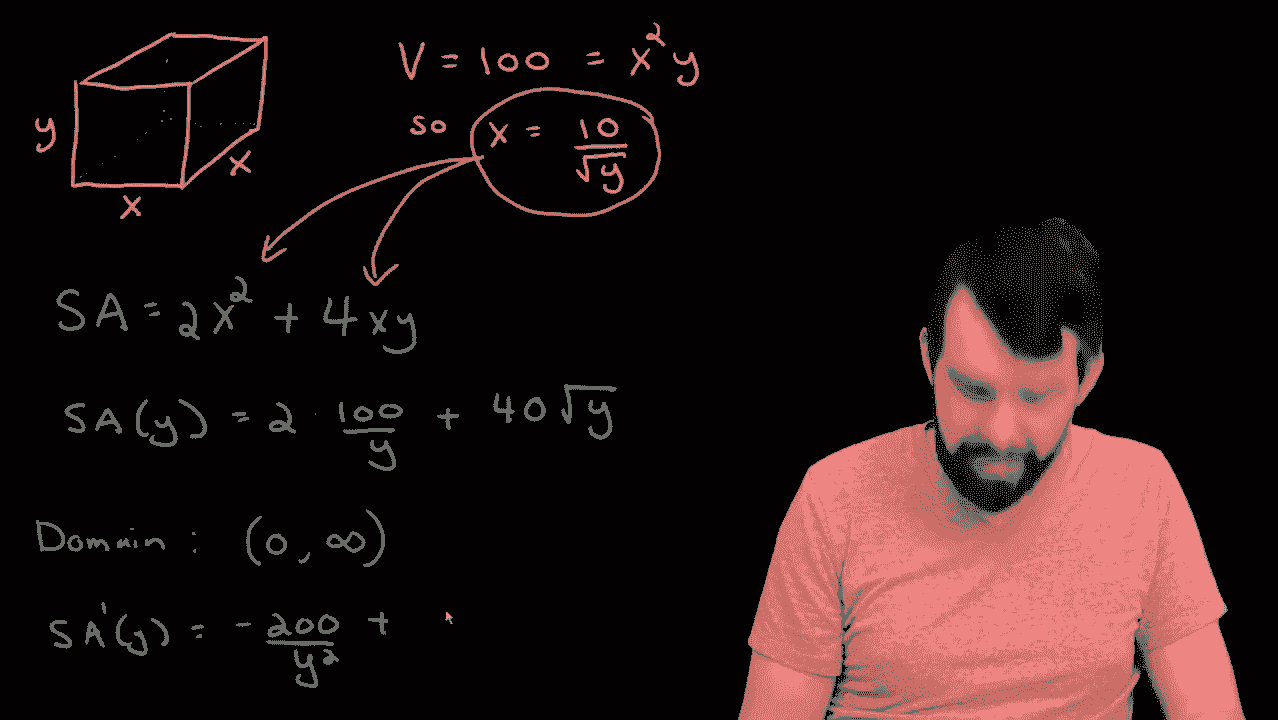 V = 100 = x²y
so x = 10/√y
y
x
x
SA = 2x² + 4xy
SA(y) = 2 · 100/y + 40√y
Domain : (0, ∞)
SA'(y) = - 200/y² +